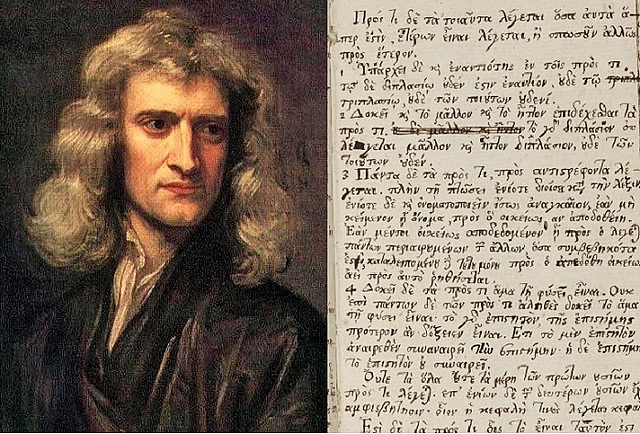 Πρὸς τι δὲ τὰ τοιαῦτα λέγεται ὅσα αὐτὰ ἅ-
περ ἐστὶν, ἑτέρων εἶναι λέγεται, ἢ ὁπωσοῦν ἄλλως
πρὸς ἕτερον.
1 Ὑπάρχει δὲ κ̀ ἐναντιότης ἐν τοῖς πρὸς τι.
τῷ δὲ διπλασίῳ οὐδέν ἐστιν ἐναντίον, οὐδὲ τῷ
τριπλασίῳ, οὐδὲ τῶν τοιούτων οὐδενί.
2 Δοκεῖ κ̀ τὸ μᾶλλον κ̀ τὸ ἧττον ἐπιδέχεσθαι τὰ
πρὸς τι. τὸ γὸ διπλάσιον οὐ
λέγεται μᾶλλον κ̀ ἧττον διπλάσιον, οὐδὲ τῶν
τοιούτων οὐδέν.
3 Πάντα δὲ τὰ πρὸς τι, πρὸς ἀντιστρέφοντα λέ-
γεται. πλὴν τῇ πτώσει ἐνίοτε διοίσει κ̀ τὴν λέξιν
ἐνίοτε δὲ κ̀ ὀνοματοποιεῖν ἴσως ἀναγκαῖον, ἐὰν μὴ
κείμενον ᾖ ὄνομα, πρὸς ὃ οἰκείως ἂν ἀποδοθείη.
Ἐὰν μέντοι οἰκείως ἀποδεδομένον ᾖ πρὸς ὃ λέγε)
πάντων περιαιρουμένων τ ἄλλων, ὅσα συμβεβηκότα
ἐστι, καταλειπομένου τούτου μόνου πρὸς ὃ ἀπεδόθη οἰκείως
ἀεὶ πρὸς αὐτὸ ῥηθήσεται.
4 Δοκεῖ δὲ τὰ πρὸς τι ἅμα τῇ φύσει εἶναι. Οὐκ
ἐπὶ πάντων δὲ τῶν πρὸς τι ἀληθὲς δοκεῖ τὸ ἅμα
τῇ φύσει εἶναι. τὸ γὸ ἐπιστητὸν, τῆς ἐπιστήμης
πρότερον ἂν δόξειεν εἶναι. Ἔτι τὸ μὲν ἐπιστητὸν
ἀναιρεθὲν συναναιρεῖ τὴν ἐπιστήμην. ἡ δὲ ἐπιστήμη
τὸ ἐπιστητὸν οὐ συναιρεῖ.
Οὔτε τὰ ὅλα οὔτε τὰ μέρη τῶν πρώτων οὐσιῶν
πρὸς τι λέγε). ἐπ' ἐνίων δὲ τ δευτέρων οὐσιῶν ἔχει
ἀμφισβήτησιν. οἷον ἡ κεφαλὴ τινὸς λέγεται κεφαλὴ
Ἔστι δὲ τὰ πρὸς τι οἷς τὸ εἶναι ταὐτόν ἐστι